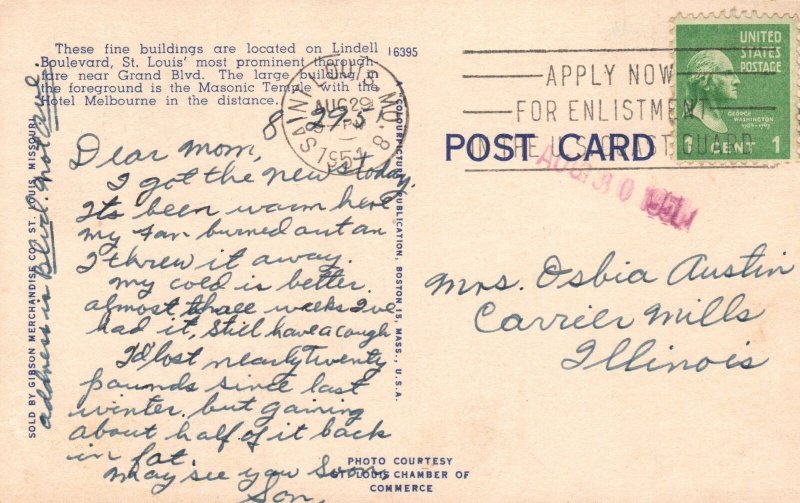 These fine buildings are located on Lindell
Boulevard, St. Louis' most prominent thorough-
fare near Grand Blvd. The large building in
the foreground is the Masonic Temple with the
Hotel Melbourne in the distance.
16395
8 29-51
Dear Mom,
I got the news today.
Its been warm here
my fan burned out an
I threw it away.
My cold is better.
almost three weeks I've
had it, still have a cough
I'd lost nearly twenty
pounds since last
winter. but gaining
about half of it back
in fat.
may see you soon,
Son,
address is Blvd. not ave.
SOLD BY GIBSON MERCHANDISE CO., ST. LOUIS, MISSOURI
A "COLOURPICTURE" PUBLICATION, BOSTON 15, MASS., U.S.A.
PHOTO COURTESY
ST. LOUIS CHAMBER OF
COMMERCE
SAINT LOUIS, MO. 8
AUG 29
PM
1951
APPLY NOW
FOR ENLISTMENT
IN THE U.S. COAST GUARD
POST CARD
AUG 30 1951
UNITED
STATES
POSTAGE
GEORGE
WASHINGTON
1 CENT 1
Mrs. Osbia Austin
Carrier Mills
Illinois